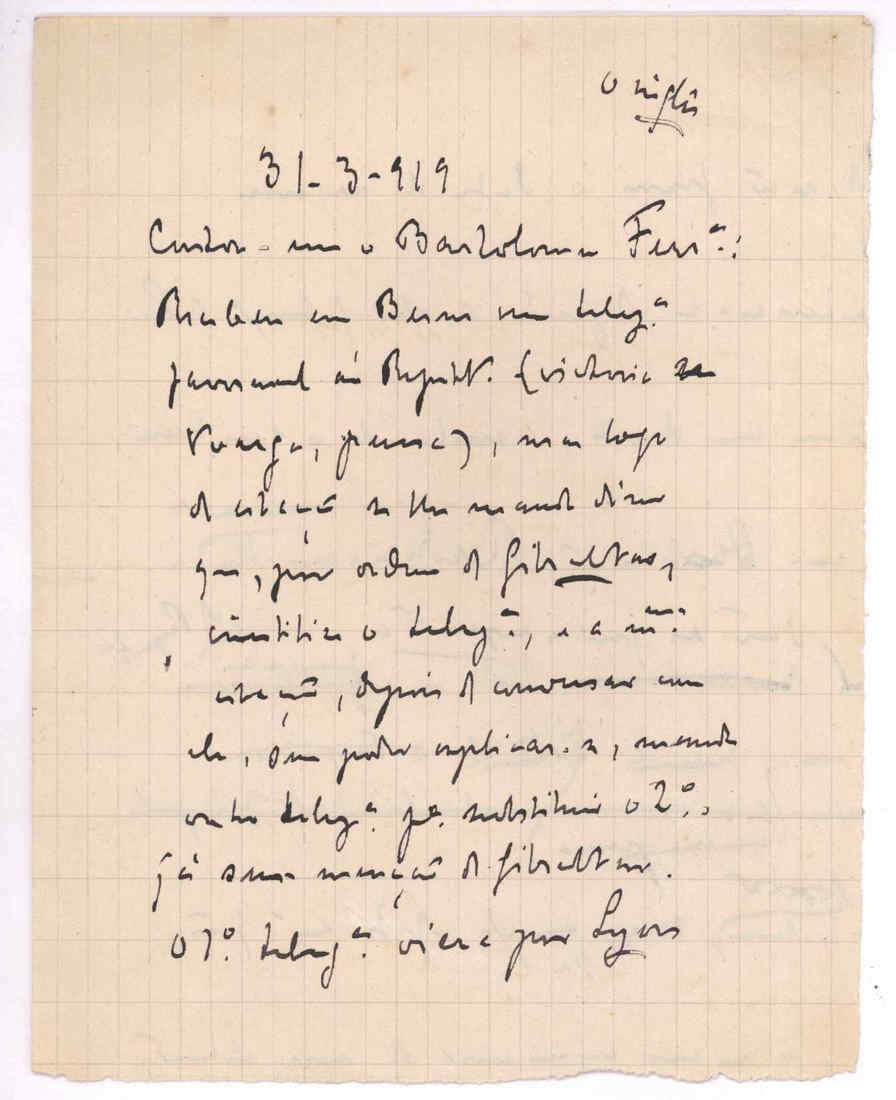 O inglês
31-3-919
Contou-me o Bartolomeu Ferrª:
Recebeu em Berna um telegª
favoravel á Republ. (victoria
Vouga, parece), mas logo
de estação se lhe manda dizer
que, por ordem de Gibraltar,
inutilise o telegª, e a mmª
estação, depois de conversar com
ele, sem poder explicar-se, manda
outro telegª pª substituir o 2º,
já sem menção de Gibraltar.
O 1º telegª viera por Lyon